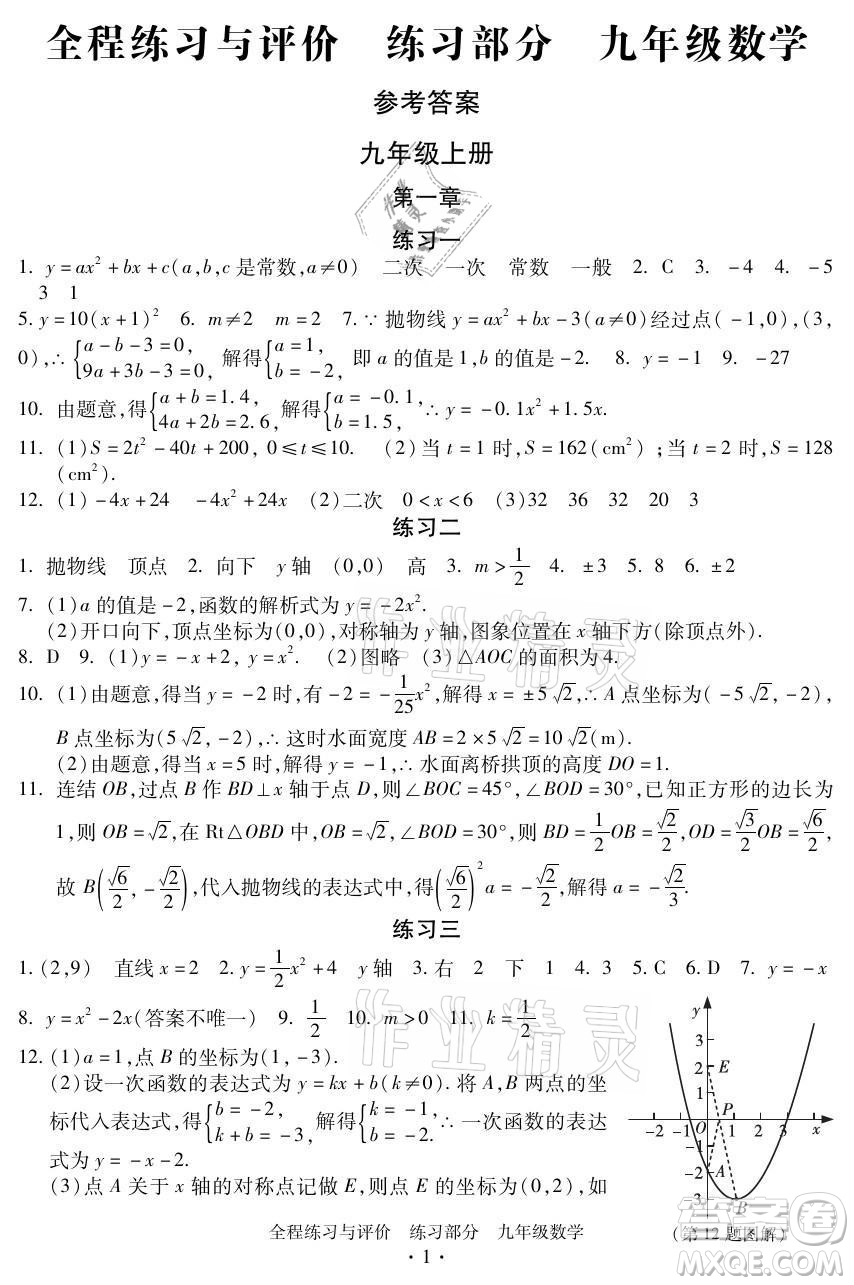 全程练习与评价　练习部分　九年级数学
参考答案
九年级上册
第一章
练习一
1. y=ax²+bx+c(a,b,c 是常数,a≠0)　二次　一次　常数　一般　2. C　3. －4　4. －5
3　1
5. y=10(x+1)²　6. m≠2　m=2　7. ∵ 抛物线 y=ax²+bx-3(a≠0)经过点(-1,0),(3,
0),∴ {a-b-3=0, 9a+3b-3=0, 解得{a=1, b=-2, 即 a 的值是 1,b 的值是-2.　8. y=-1　9. -27
10. 由题意,得{a+b=1.4, 4a+2b=2.6, 解得{a=-0.1, b=1.5, ∴ y=-0.1x²+1.5x.
11. (1)S=2t²-40t+200, 0≤t≤10.　(2)当 t=1 时,S=162(cm²);当 t=2 时,S=128
(cm²).
12. (1)-4x+24　-4x²+24x　(2)二次　0<x<6　(3)32　36　32　20　3
练习二
1. 抛物线　顶点　2. 向下　y 轴　(0,0)　高　3. m>1/2　4. ±3　5. 8　6. ±2
7. (1)a 的值是-2,函数的解析式为 y=-2x².
(2)开口向下,顶点坐标为(0,0),对称轴为 y 轴,图象位置在 x 轴下方(除顶点外).
8. D　9. (1)y=-x+2, y=x².　(2)图略　(3)△AOC 的面积为 4.
10. (1)由题意,得当 y=-2 时,有-2=-1/25x²,解得 x=±5√2,∴ A 点坐标为(-5√2,-2),
B 点坐标为(5√2,-2),∴ 这时水面宽度 AB=2×5√2=10√2(m).
(2)由题意,得当 x=5 时,解得 y=-1.∴ 水面离桥拱顶的高度 DO=1.
11. 连结 OB,过点 B 作 BD⊥x 轴于点 D,则∠BOC=45°,∠BOD=30°,已知正方形的边长为
1,则 OB=√2,在 Rt△OBD 中,OB=√2,∠BOD=30°,则 BD=1/2OB=√2/2,OD=√3/2OB=√6/2,
故 B(√6/2,-√2/2),代入抛物线的表达式中,得(√6/2)²a=-√2/2,解得 a=-√2/3.
练习三
1. (2,9)　直线 x=2　2. y=1/2x²+4　y 轴　3. 右　2　下　1　4. 3　5. C　6. D　7. y=-x
8. y=x²-2x(答案不唯一)　9. 1/2　10. m>0　11. k=1/2
12. (1)a=1,点 B 的坐标为(1,-3).
(2)设一次函数的表达式为 y=kx+b(k≠0). 将 A,B 两点的坐
标代入表达式,得{b=-2, k+b=-3, 解得{k=-1, b=-2. ∴ 一次函数的表达
式为 y=-x-2.
(3)点 A 关于 x 轴的对称点记做 E,则点 E 的坐标为(0,2),如
y
3
2 E
1
P
-2 -1 O 1 2 3 x
-1
-2 A
-3
B
(第 12 题图解)
全程练习与评价　练习部分　九年级数学
· 1 ·
作业精灵
作业精灵
作业精灵
答案圈
MXQE.COM